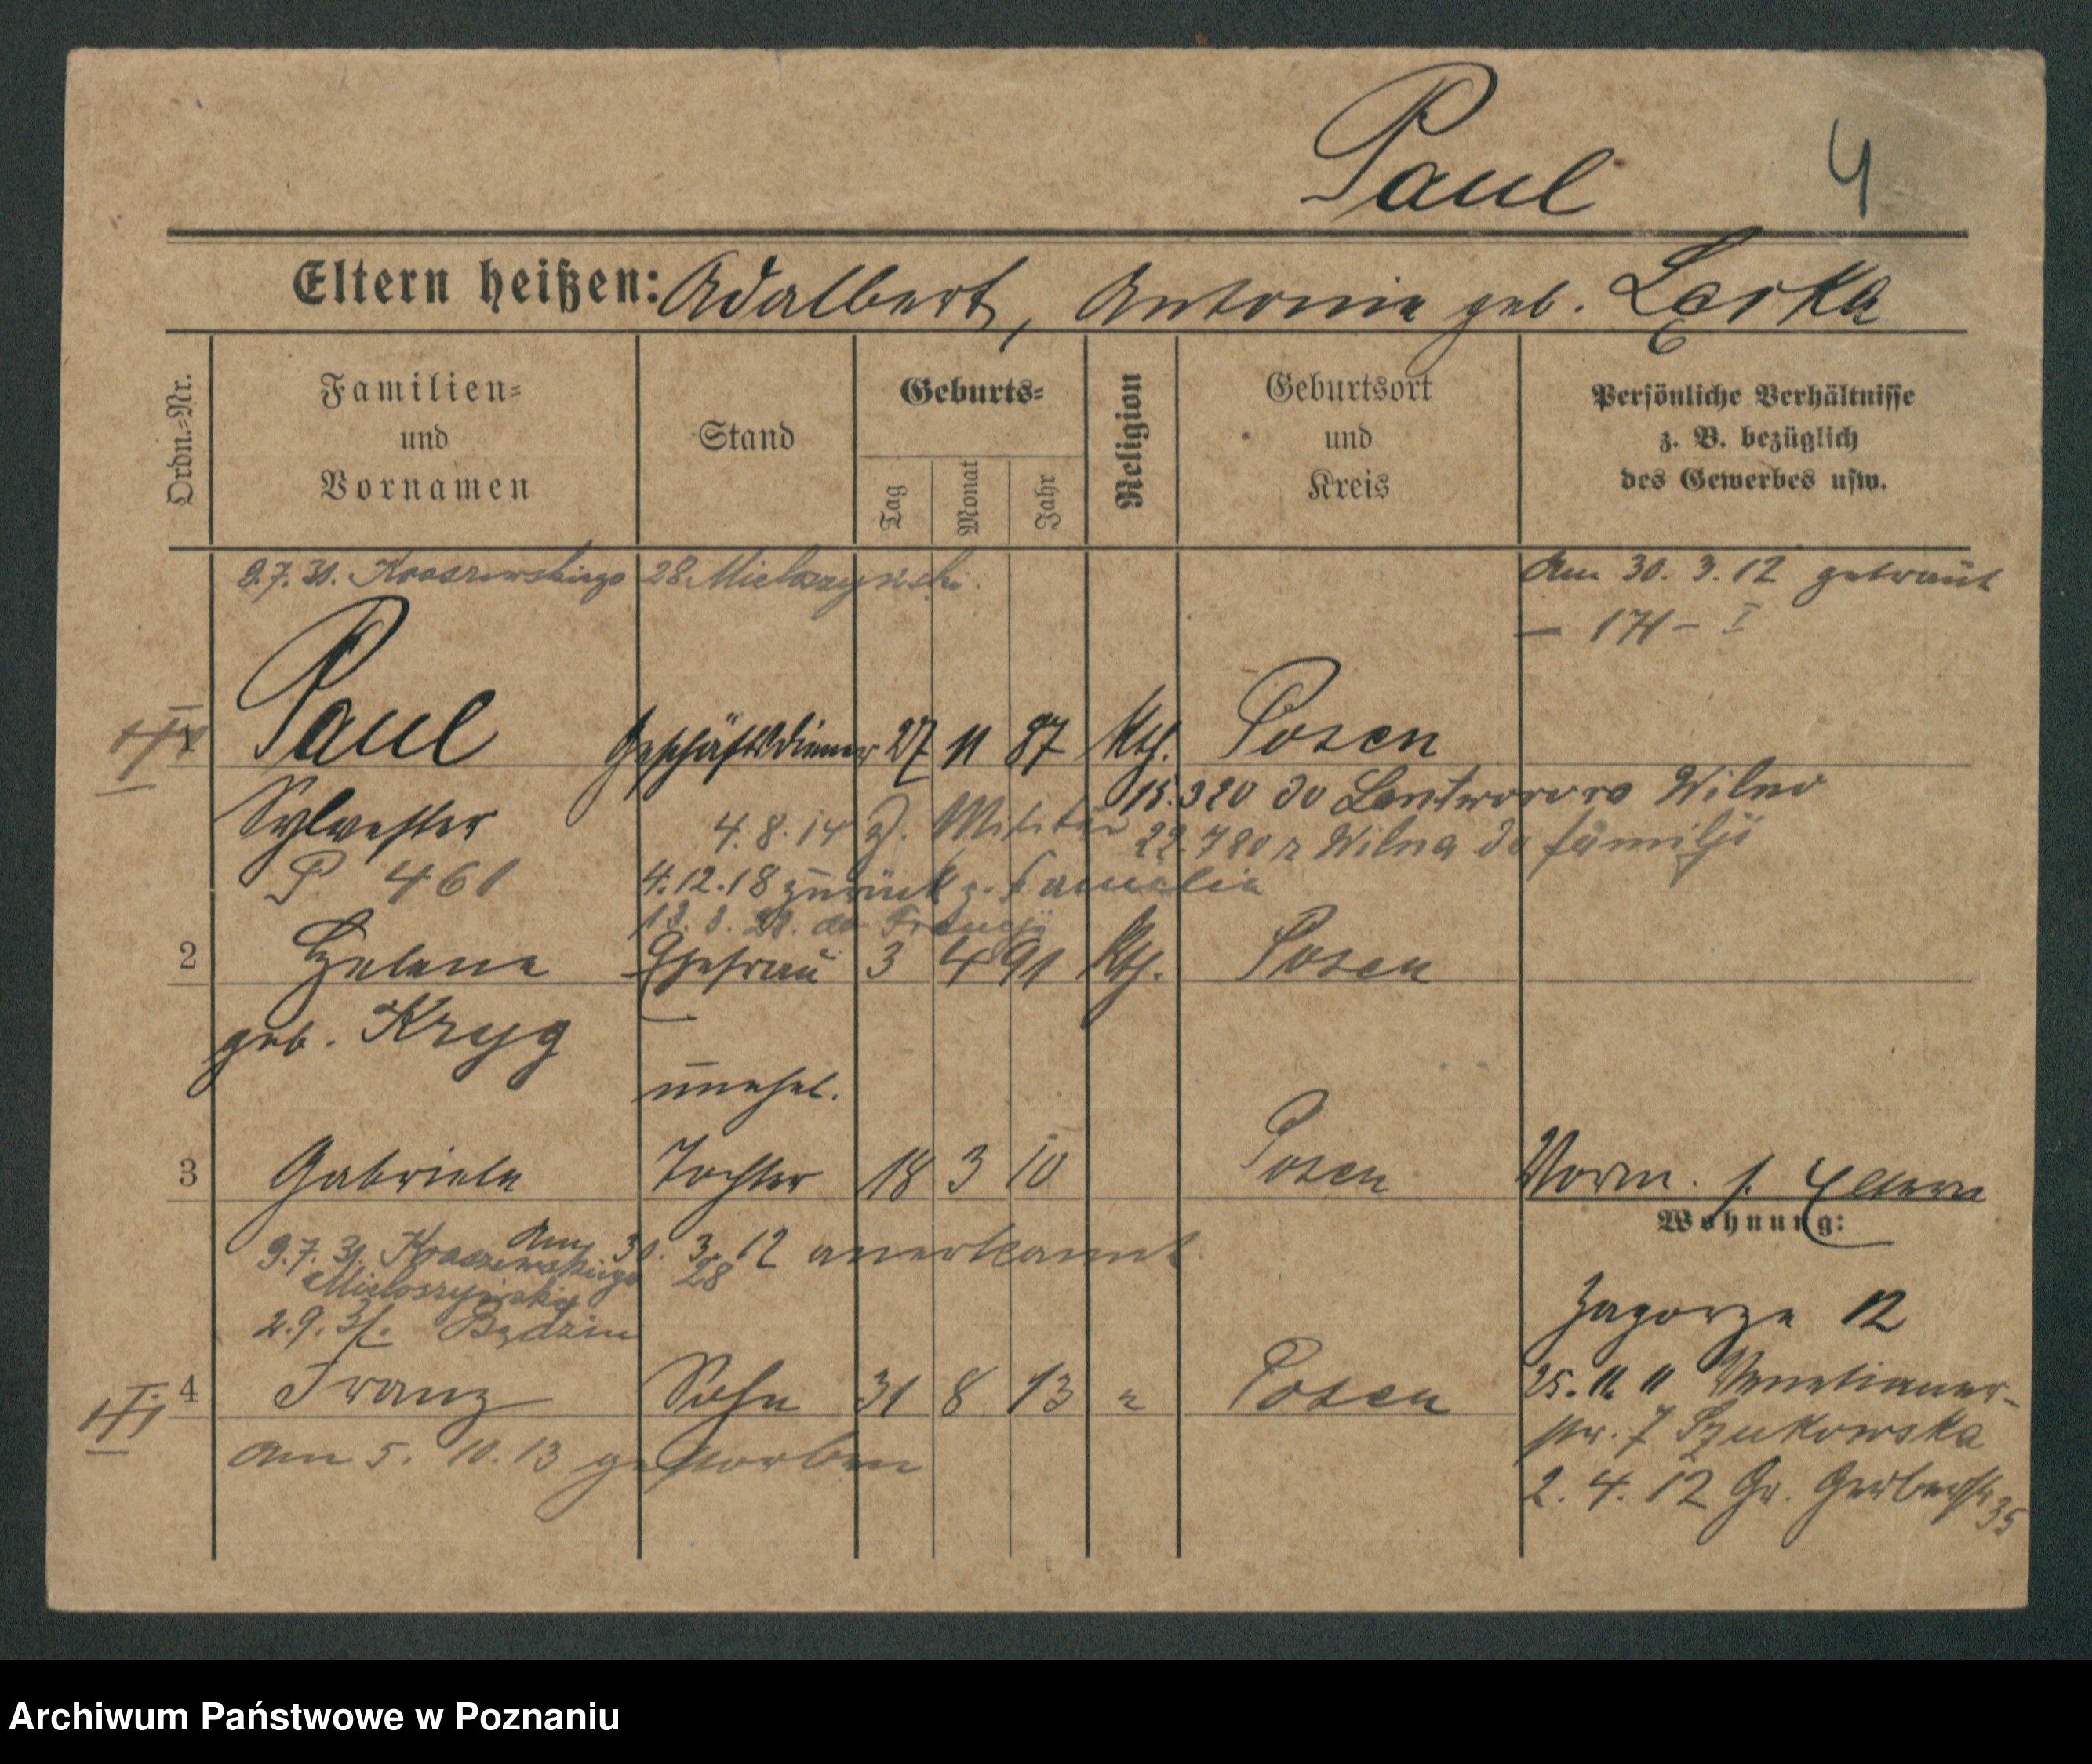 Paul 4
Eltern heißen: Adalbert, Antonia geb. Łęska
Ordn.-Nr.
Familien-
und
Vornamen
Stand
Geburts-
Tag
Monat
Jahr
Religion
Geburtsort
und
Kreis
Persönliche Verhältnisse
z. B. bezüglich
des Gewerbes usw.
9.7.31. Kraszewskiego 28 Mieloszyński.
Am 30. 3. 12 getraut
I
1 Paul Geschäftsdiener 27 11 87 Kth. Posen
Sylvester
15.3 20 do Wilno
4.8.14 z. Militär
22.7 20 z Wilna do familji
P. 461
4.12.18 zurück z. Familie
do Francji
2 Helene Ehefrau 3 4 91 Kth. Posen
geb. Kryg
unehel.
3 Gabriele Tochter 18 3 10 Posen Vorm. s. Eltern
Am 30. 3. 12 anerkannt.
Wohnung:
9.7.31. Kraszewskiego 28
Mieloszyński
2.9.31. Będzin
Zagorze 12
4 Franz Sohn 31 8 13 " Posen
25. 11. 11 Venetianer-
str. 7 Szukowska
am 5. 10. 13 gestorben
2. 4. 12 Gr. Gerberstr 35
Archiwum Państwowe w Poznaniu